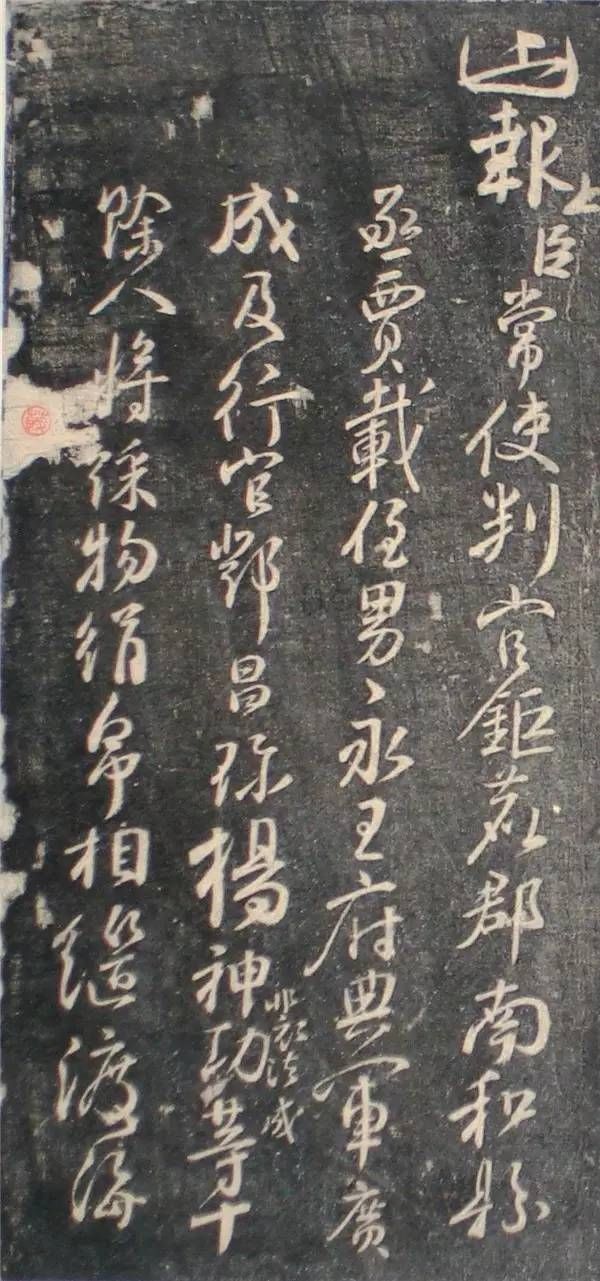 報上臣常使判官鉅鹿郡南和縣
丞賈載侄男永王府典軍廣
成及行官鄧昌珍楊神功等十
餘人將綵物絹帛相繼渡海